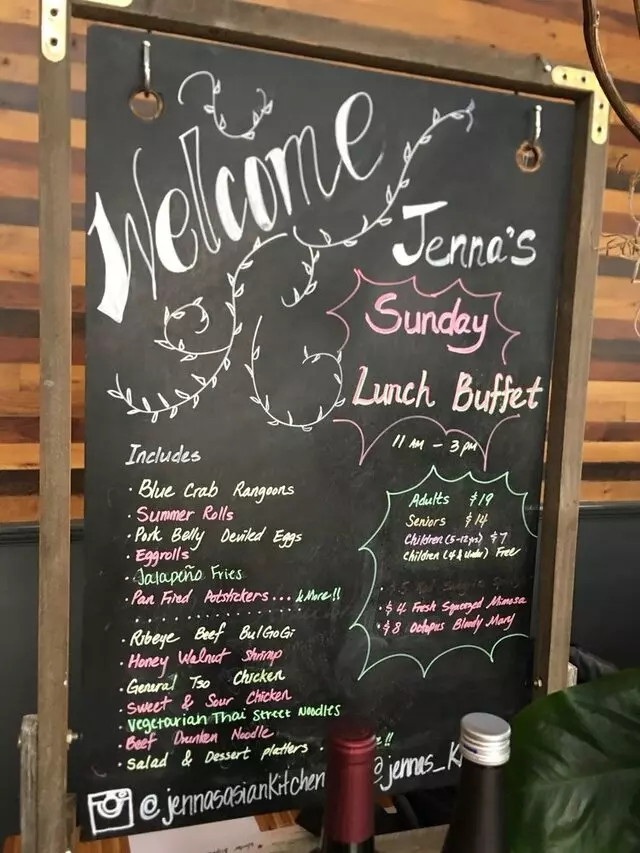 Welcome
Jenna's
Sunday
Lunch Buffet
11 AM - 3 PM
Includes
· Blue Crab Rangoons
· Summer Rolls
· Pork Belly Deviled Eggs
· Eggrolls
· Jalapeño Fries
· Pan Fried Potstickers... & More!!
· Ribeye Beef BulGoGi
· Honey Walnut Shrimp
· General Tso Chicken
· Sweet & Sour Chicken
· Vegetarian Thai Street Noodles
· Beef Drunken Noodle
· Salad & Dessert platters
Adults $19
Seniors $14
Children (5-12yrs) $7
Children (4 & Under) Free
· $4 Fresh Squeezed Mimosa
· $8 Octopus Bloody Mary
@jennasasiankitchen
@jennas_K